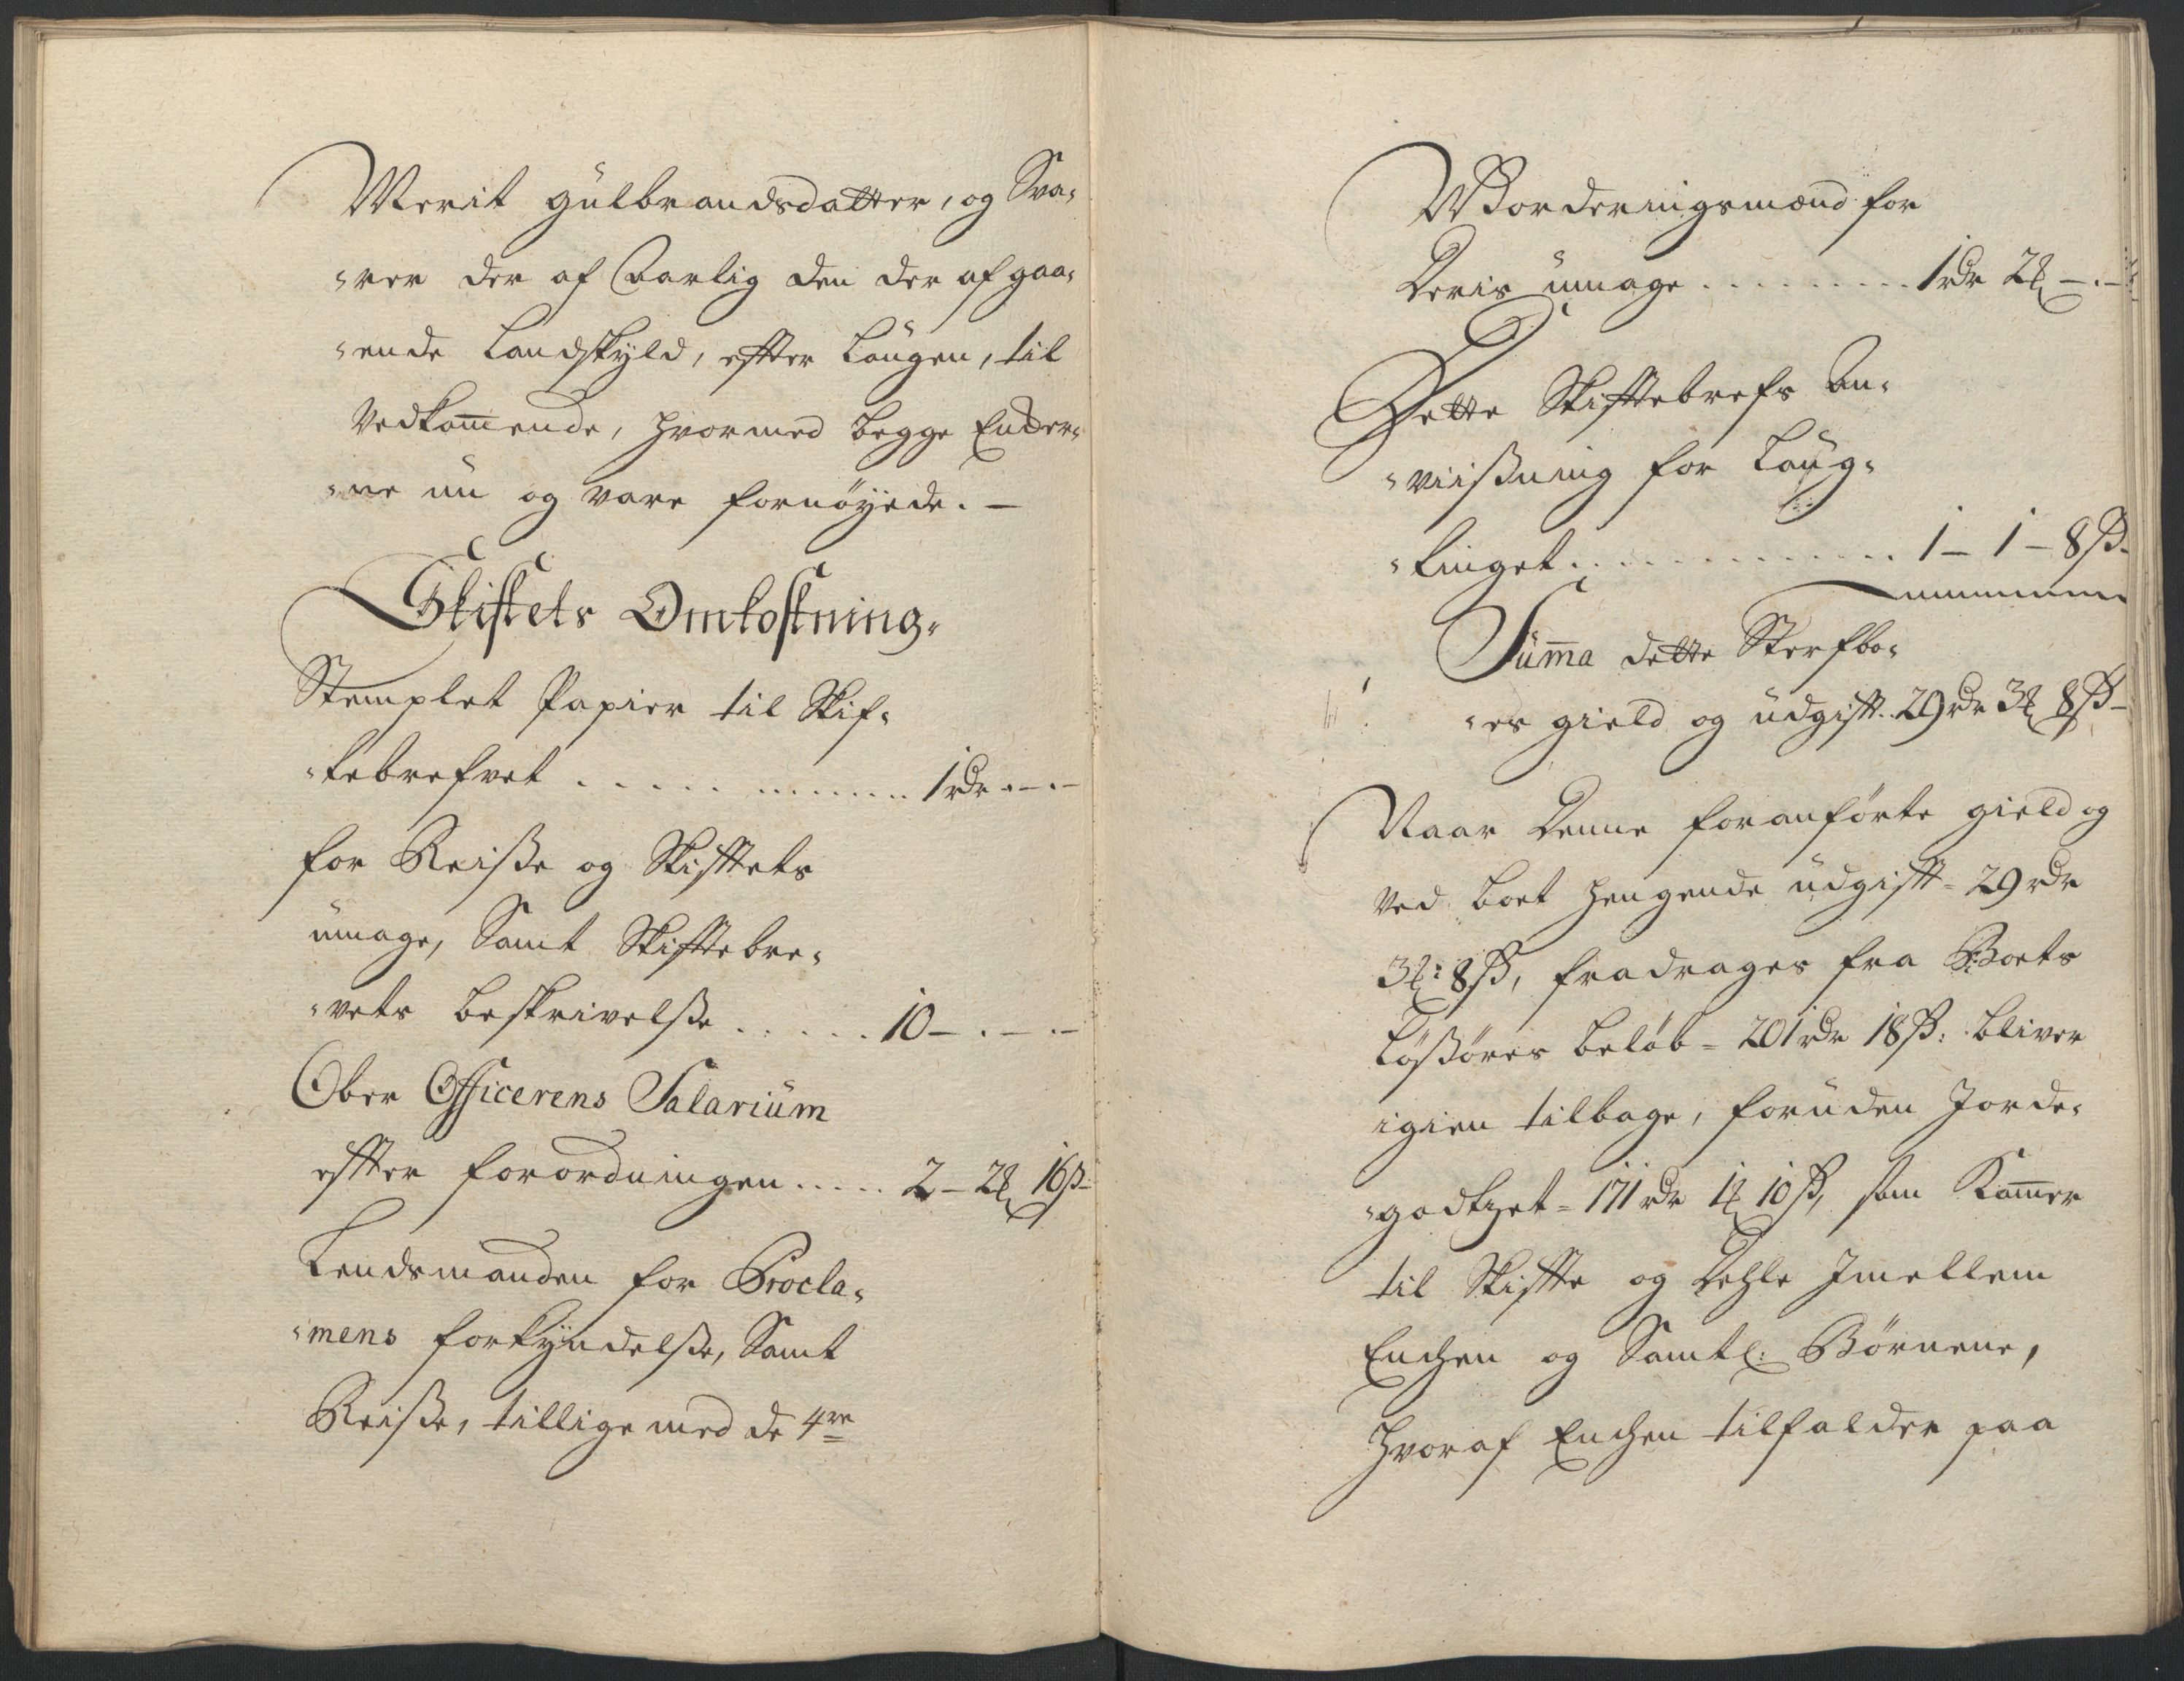 Merit Gulbrandsdatter, og Sva-
-rer der af Aarlig den der af gaa-
-ende Landskyld, efter Laugen, til
Vedkom̅ende, hvormed begge
-ne nu og vare fornøyede. –
Skiftets Omkostning.
Stemplet Papier til Skif-
-tebrefvet . . . . . . . . . . . . 1 rdr - . -
for Reiße og Skifftets
umage, Samt Skifftebre-
-vets beskrivelße . . . . . . 10 – . – . –
Ober Officerens Salarium
effter forordningen . . . . . 2 – 2 ℔ 16 ß
Lendsmanden for Procla-
-mens forkyndelße, Samt
Reiße, tillige med de 4re
Worderingsmænd for
Deris umage . . . . . . . . . 1 rdr 2 ℔ – . –
Dette Skifftebrefs An-
-viißning for Laug-
-tinget . . . . . . . . . . . . 1 – 1 – 8 ß
Sum̅a dette Sterfbo-
-es gield og udgifft . 29 rdr 3 ℔ 8 ß
Naar Denne foranførte gield og
Ved boet hengende udgifft = 29 rdr
3 ℔: 8 ß, fradrages fra Boets
Løßøres beløb = 201 rdr 18 ß: bliver
igien tilbage, foruden Jorde-
-godtzet = 171 rdr 1 ℔ 10 ß, som Kom̅er
til Skiffte og Dehle Imellem
Enchen og Samtl: Børnene,
hvoraf Enchen tilfalder paa